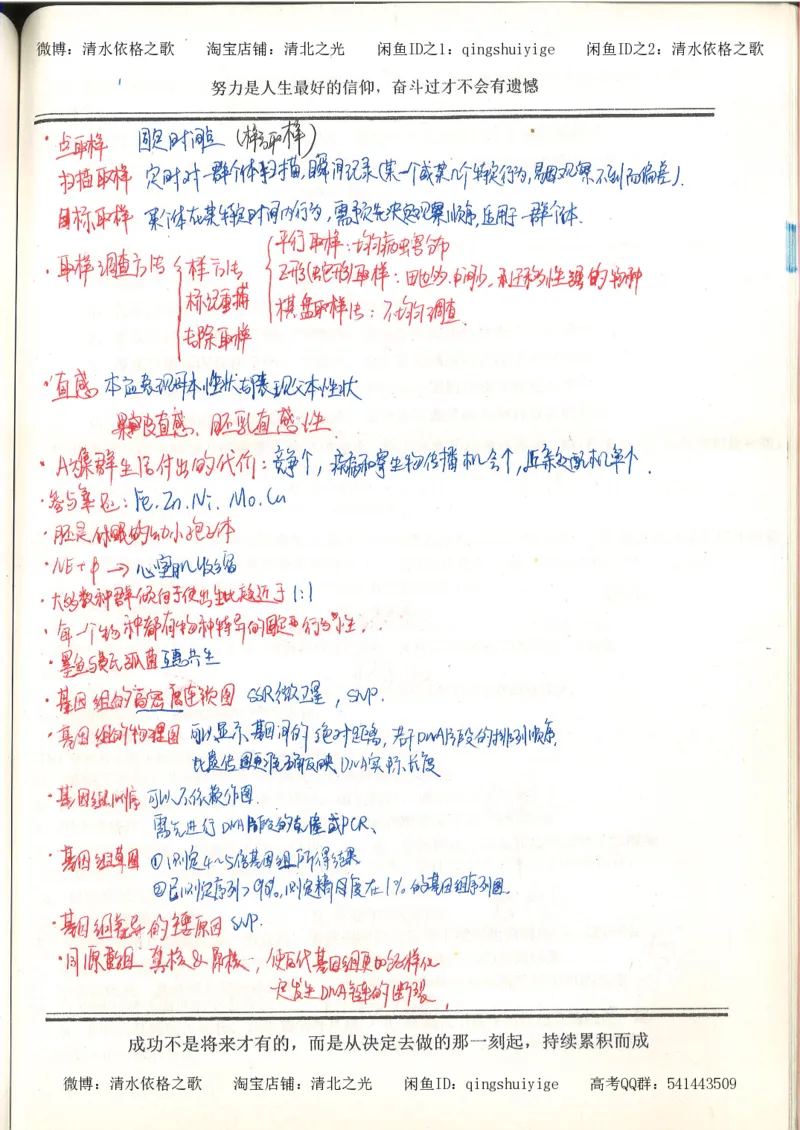 微博：清水依格之歌 淘宝店铺：清北之光 闲鱼ID之1：qingshuiyige 闲鱼ID之2：清水依格之歌
努力是人生最好的信仰，奋斗过才不会有遗憾
·点取样 固定时间点 (样
扫描取样 定时对一群个体扫描,瞬间记录(某一个或某几个特定行为,易因观察不到而偏差).
目标取样 某个体在某特定时间内行为,需预先决定观察顺序,适用一群个体.
平行取样:均匀病虫害分布
·取样调查方法 样方法 Z形(蛇形)取样:田边多.中间少.
标记重捕 棋盘取样法:不均匀调查.
去除取样
·直感 本品表现母本性状
果皮直感、胚乳直感性
·A为集群生活付出的代价:竞争↑,疾病和寄生物传播机会↑,
·参与氧化:Fe.Zn.Ni.Mo.Cu
·胚是休眠的幼小孢子体
·NE+β→心室肌收缩
·大多数种群倾向于使出生比趋近于1:1
·每一个物种都有物种特异的固定行为型.
·墨鱼与 弧菌互惠共生
·基因组的高密度连锁图 SSR微卫星,SNP.
·基因组的物理图 可以显示基因间的绝对距离,若干DNA片段的排列顺序,
比遗传图更准确反映DNA实际长度
·基因组测序 可以不依赖作图.
需先进行DNA片段的克隆或PCR、
·基因组草图 ①测定4~5倍基因组所得结果
②已测定序列>90%,测定精确度在1%的基因组序列图.
·基因组差异的主要原因 SNP.
·同源重组 真核&原核,使后代基因组更加多样化
只发生DNA链的断裂.
成功不是将来才有的，而是从决定去做的那一刻起，持续累积而成
微博：清水依格之歌 淘宝店铺：清北之光 闲鱼ID：qingshuiyige 高考QQ群：541443509